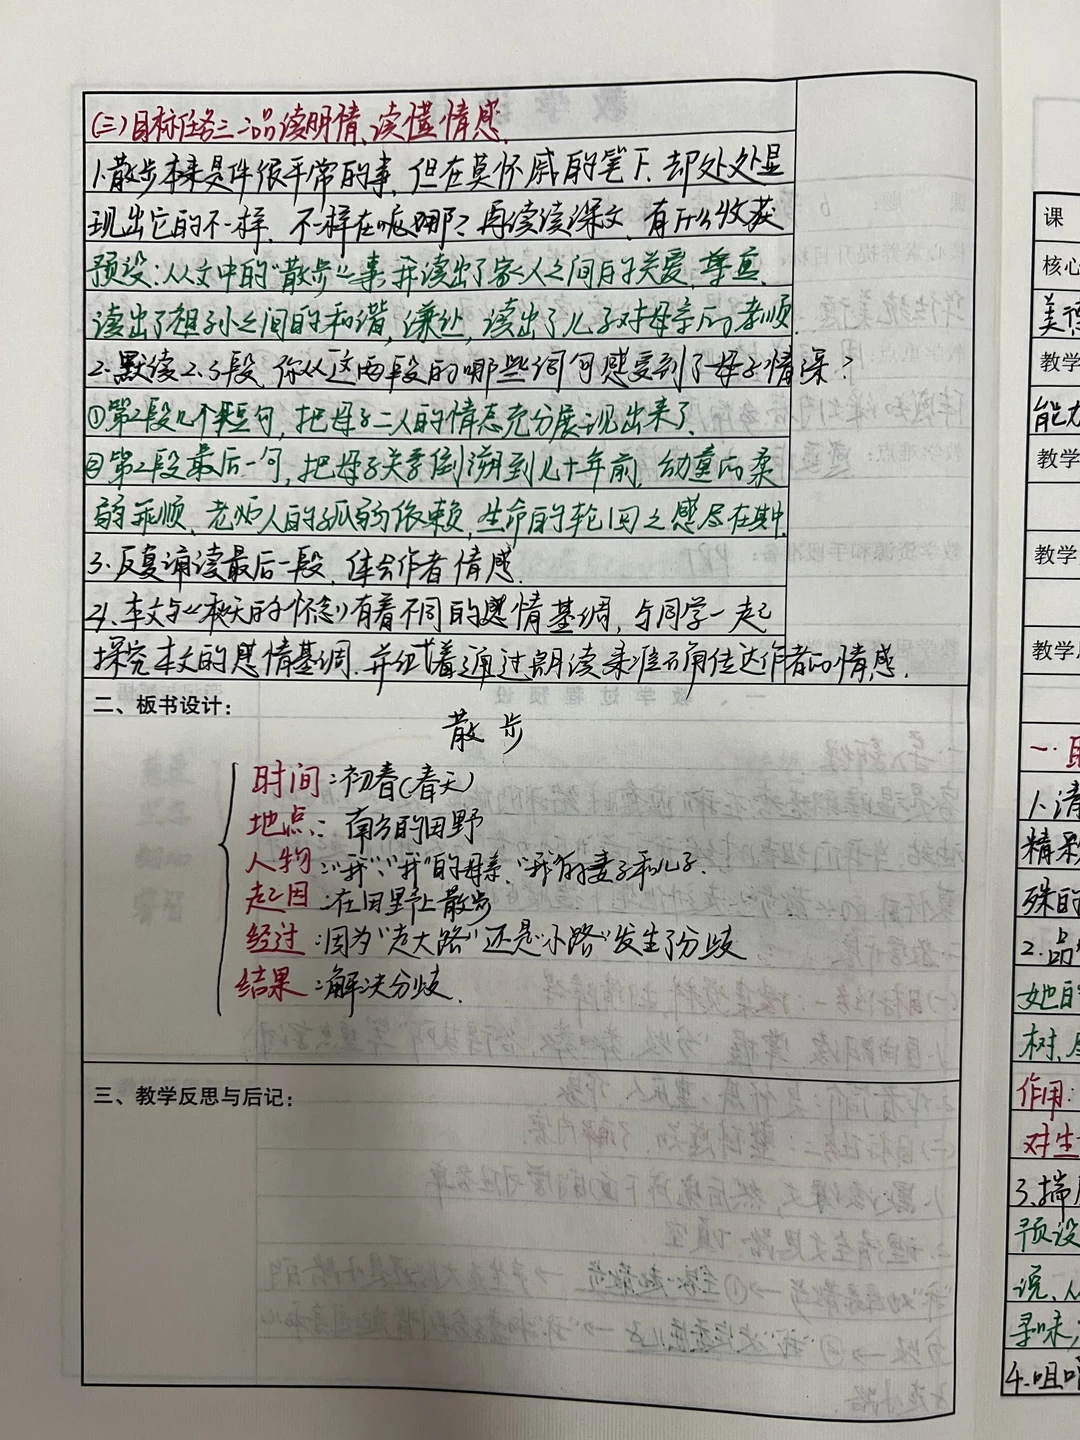 (三)目标任务三:品读明情、读懂情感.
1.散步本来是件很平常的事,但在莫怀戚的笔下,却处处显
现出它的不一样,不一样在哪里呢?再读读课文,有什么收获
预设:从文中的“散步”这事,并读出了家人之间的关爱、尊重、
读出了祖孙之间的和谐、谦让,读出了儿子对母亲的孝顺.
2.默读2.3段,你从这两段的哪些词句感受到了母子情深?
①第2段几个短句,把母子二人的情态充分展现出来了.
②第2段最后一句,把母子关系倒溯到几十年前,幼童的柔
弱乖顺、老病人的孤弱依赖,生命的轮回之感尽在其中.
3.反复诵读最后一段,体会作者情感.
4.本文与《秋天的怀念》有着不同的感情基调,与同学一起
探究本文的感情基调.并试着通过朗读来准确传达作者的情感.
二、板书设计:
散步
时间:初春(春天)
地点:南方的田野
人物:“我”、“我”的母亲、“我”的妻子和儿子.
起因:在田野上散步
经过:因为“走大路”还是“小路”发生了分歧
结果:解决分歧.
三、教学反思与后记:
课
核心
美德
教学
能力
教学
教学
教学
1.清
精彩
殊的
2.品
她的
树、
作用:
对生
3.揣
预设
说、
寻味,
4.咀